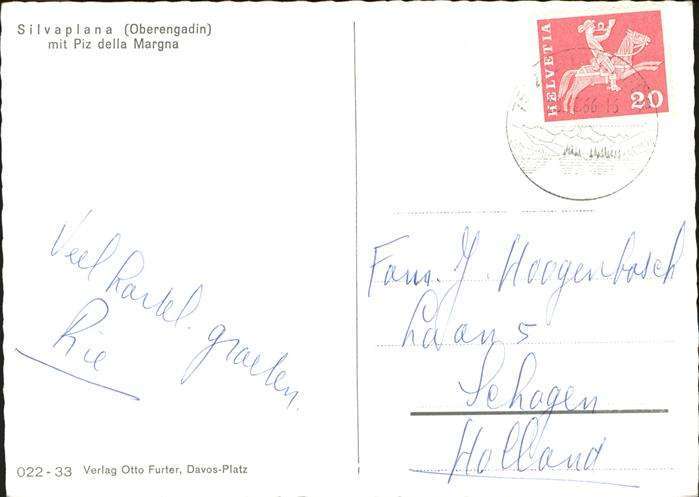 Silvaplana (Oberengadin)
mit Piz della Margna
HELVETIA
20
66-15
Veel hartel. groeten.
Rie
Fam. J. Hoogenbosch
Laan 5
Schagen
Holland
022-33 Verlag Otto Furter, Davos-Platz